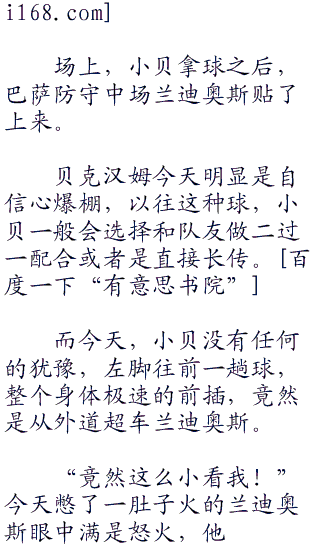 i168.com]
场上，小贝拿球之后，
巴萨防守中场兰迪奥斯贴了
上来。
贝克汉姆今天明显是自
信心爆棚，以往这种球，小
贝一般会选择和队友做二过
一配合或者是直接长传。[百
度一下“有意思书院”]
而今天，小贝没有任何
的犹豫，左脚往前一趟球，
整个身体极速的前插，竟然
是从外道超车兰迪奥斯。
“竟然这么小看我！”
今天憋了一肚子火的兰迪奥
斯眼中满是怒火，他